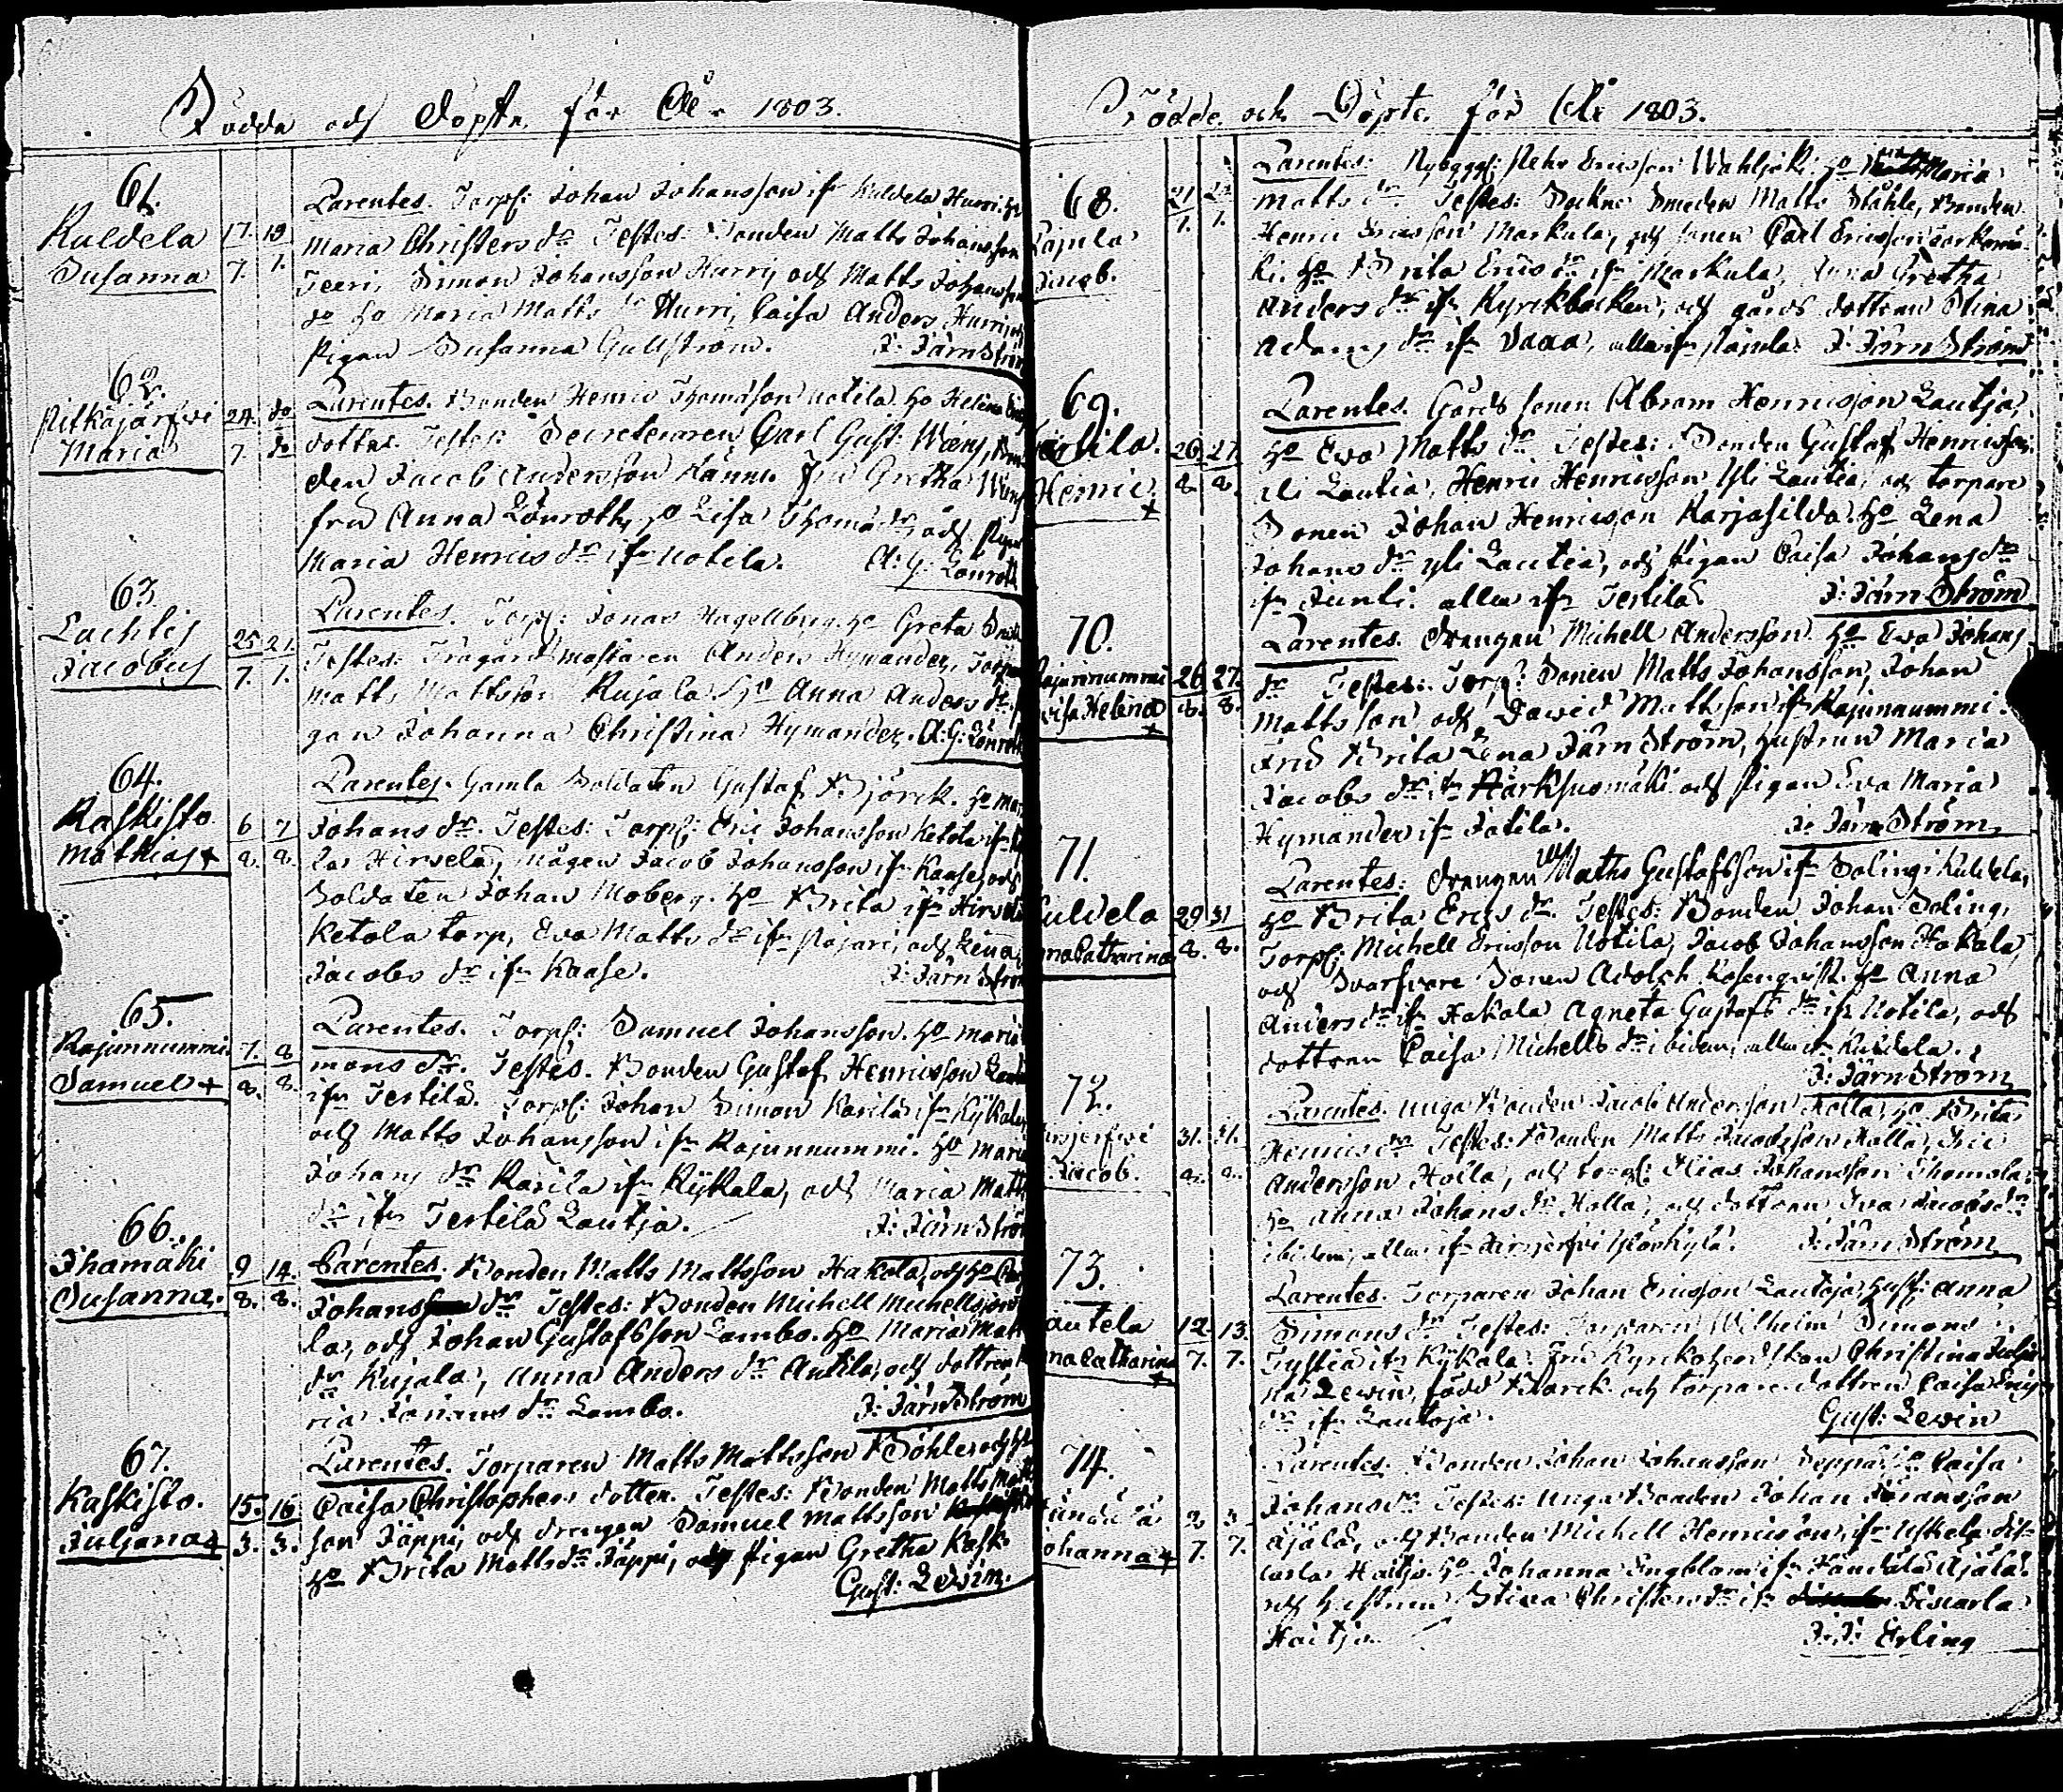 Födda och Döpta för År 1803.
61.
Kuldela
Susanna
17. 19
7. 7.
Parentes. Torp: Johan Johansson ifr Kuldela Hurri. ho
Maria Christers dr Testes: Bonden Matts Johansson
Teeri, Simon Johansson Hurri, och Matts Johansson
do ho Maria Matts dr Hurri, Caisa Anders Hurri, och
Pigan Susanna Gullström. J: Järnström
62.
Pitkäjärfvi
Maria
24. do
7. do
Parentes. Bonden Henric Thomasson Uotila. ho Helena
dotter. Testes: Secreteraren Carl Gust: Wæny,
den Jacob Andersson Hannu. Fru Gretha Wæny
fru Anna Lönroth, ho Lisa Thomæ dr, och Pigan
Maria Henrics dr ifr Uotila. A: G: Lönroth
63.
Lachtis
Jacobus
25. 27.
7. 7.
Parentes. Torp: Jonas Hagellberg. ho Greta
Testes: Trägårdmästaren Anders Hymander, Torp
Matts Mattsson Kujala. ho Anna Anders dr
gan Johanna Christina Hymander. A: G: Lönroth
64.
Kaskisto
Mathias +
6 7
8. 8.
Parentes. Gamla Soldaten Gustaf Björck. ho
Johans dr. Testes: Torp: Eric Johansson Ketola ifr
las Hirvelä, mågen Jacob Johansson ifr Kaase, och
Soldaten Johan Moberg. ho Brita ifr Hirvelä
Ketola torp, Eva Matts dr ifr Pajari, och Lena
Jacobs dr ifr Kaase. J: Järnström
65.
Kajunnummi
Samuel +
7. 8
8. 8.
Parentes. Torp: Samuel Johansson. ho Maria
mons dr. Testes. Bonden Gustaf Henricsson
ifr Tertila. Torp: Johan Simon Karila ifr Kykala
och Matts Johansson ifr Kajunnummi. ho Maria
Johans dr Karila ifr Kykala, och Maria Matts
dr ifr Tertila Lautja. J: Järnström
66.
Ihamäki
Susanna.
9 14.
8. 8.
Parentes. Bonden Matts Mattsson Hakola, och ho
Johans dr Testes: Bonden Michell Michellsson
la, och Johan Gustafsson Lambo. ho Maria Matts
dr Kujala, Anna Anders dr Antila, och dottren
ria Johans dr Lambo. J: Järnström
67.
Kaskisto.
Juljana +
15. 16
3. 3.
Parentes. Torparen Matts Mattsson Böhle, och ho
Caisa Christophers dotter. Testes: Bonden Matts
son Jäppi, och drengen Samuel Mattsson
ho Brita Matts dr Jäppi, och Pigan Gretha Kask
Gust: Levin.
Födde och Döpte för År 1803.
68.
Pajula
Jacob.
21 22
7. 7.
Parentes: Nybygg: Pehr Ericsson Wahljoki. ho Maria
Matts dr. Testes: Sockne Smeden Matts Ståhle, Bonden
Henric Ericsson Markula, och sonen Carl Ericsson
ki. ho Brita Erics dr ifr Markula, Gretha
Anders dr ifr Kyrckbacken, och gårds dottren Stina
Adams dr ifr Vaaa, alla ifr Pajula. J: Järnström
69.
Tertila.
Henric. +
26. 27.
8. 8.
Parentes. Gårds sonen Abram Henricsson Lautja,
ho Eva Matts dr. Testes: Bonden Gustaf Henricsson
Ali Lautia, Henric Henricsson Yli Lautia, och torpare
Sonen Johan Henricson Karjasilda. ho Lena
Johans dr yli Lautia, och Pigan Caisa Johans dr
ifr Junti. alla ifr Tertila. J: Järnström
70.
Kajunnummi
Lovisa Helena +
26 27.
8. 8.
Parentes. Drengen Michell Andersson. ho Eva Johans
dr Testes. Torp: Sonen Matts Johansson, Johan
Mattsson och David Mattsson ifr Kajunnummi.
Fru Brita Lena Järnström, hustrun Maria
Jacobs dr ifr Härksuomäki och Pigan Eva Maria
Hymander ifr Jatila. J: Järnström
71.
Kuldela
Anna Catharina
29 31
8. 8.
Parentes: Drengen Maths Gustafsson ifr Solingi Kuldela,
ho Brita Erics dr. Testes: Bonden Johan Soling,
Torp: Michell Ericsson Uotila, Jacob Johansson Hakala,
och Svarfvare Sonen Adolph Rosenqvist. ho Anna
Anders dr ifr Hakala Agneta Gustafs dr ifr Uotila, och
dottren Caisa Michells dr ibidem, alla ifr Kuldela.
J: Järnström
72.
Jacob.
31. 31.
8. 8.
Parentes. unga Bonden Jacob Andersson Holla, ho Brita
Henrics dr Testes: Bonden Matts Jacobsson Holla, Eric
Andersson Holla, och torp: Elias Johansson Thomola.
ho Anna Johans dr Holla, och dottren Eva Jacobs dr
ibidem, alla ifr Hirsjerfvi J: Järnström
73.
Lautela
Anna Catharina +
12. 13.
7. 7.
Parentes. Torparen Johan Ericsson Lautoja, hust: Anna
Simons dr Testes: Torparen Wilhelm Simons
Tystiä ifr Kykala. Fru Kyrkoherdskan Christina
Levin, född Klarck. och torpare dottren Caisa Erics
dr ifr Lautoja. Gust: Levin
74.
Johanna +
2 3
7. 7.
Parentes. Bonden Johan Johansson Seppä, ho Caisa
Johans dr Testes: unga Bonden Johan Johansson
Äjälä, och Bonden Michell Henricsson, ifr Uskela Jsk-
carla Haitja. ho Johanna Engblom ifr Äjälä.
och hustrun Stina Christers dr ifr Siscarla
Haitja. J: J: Erling